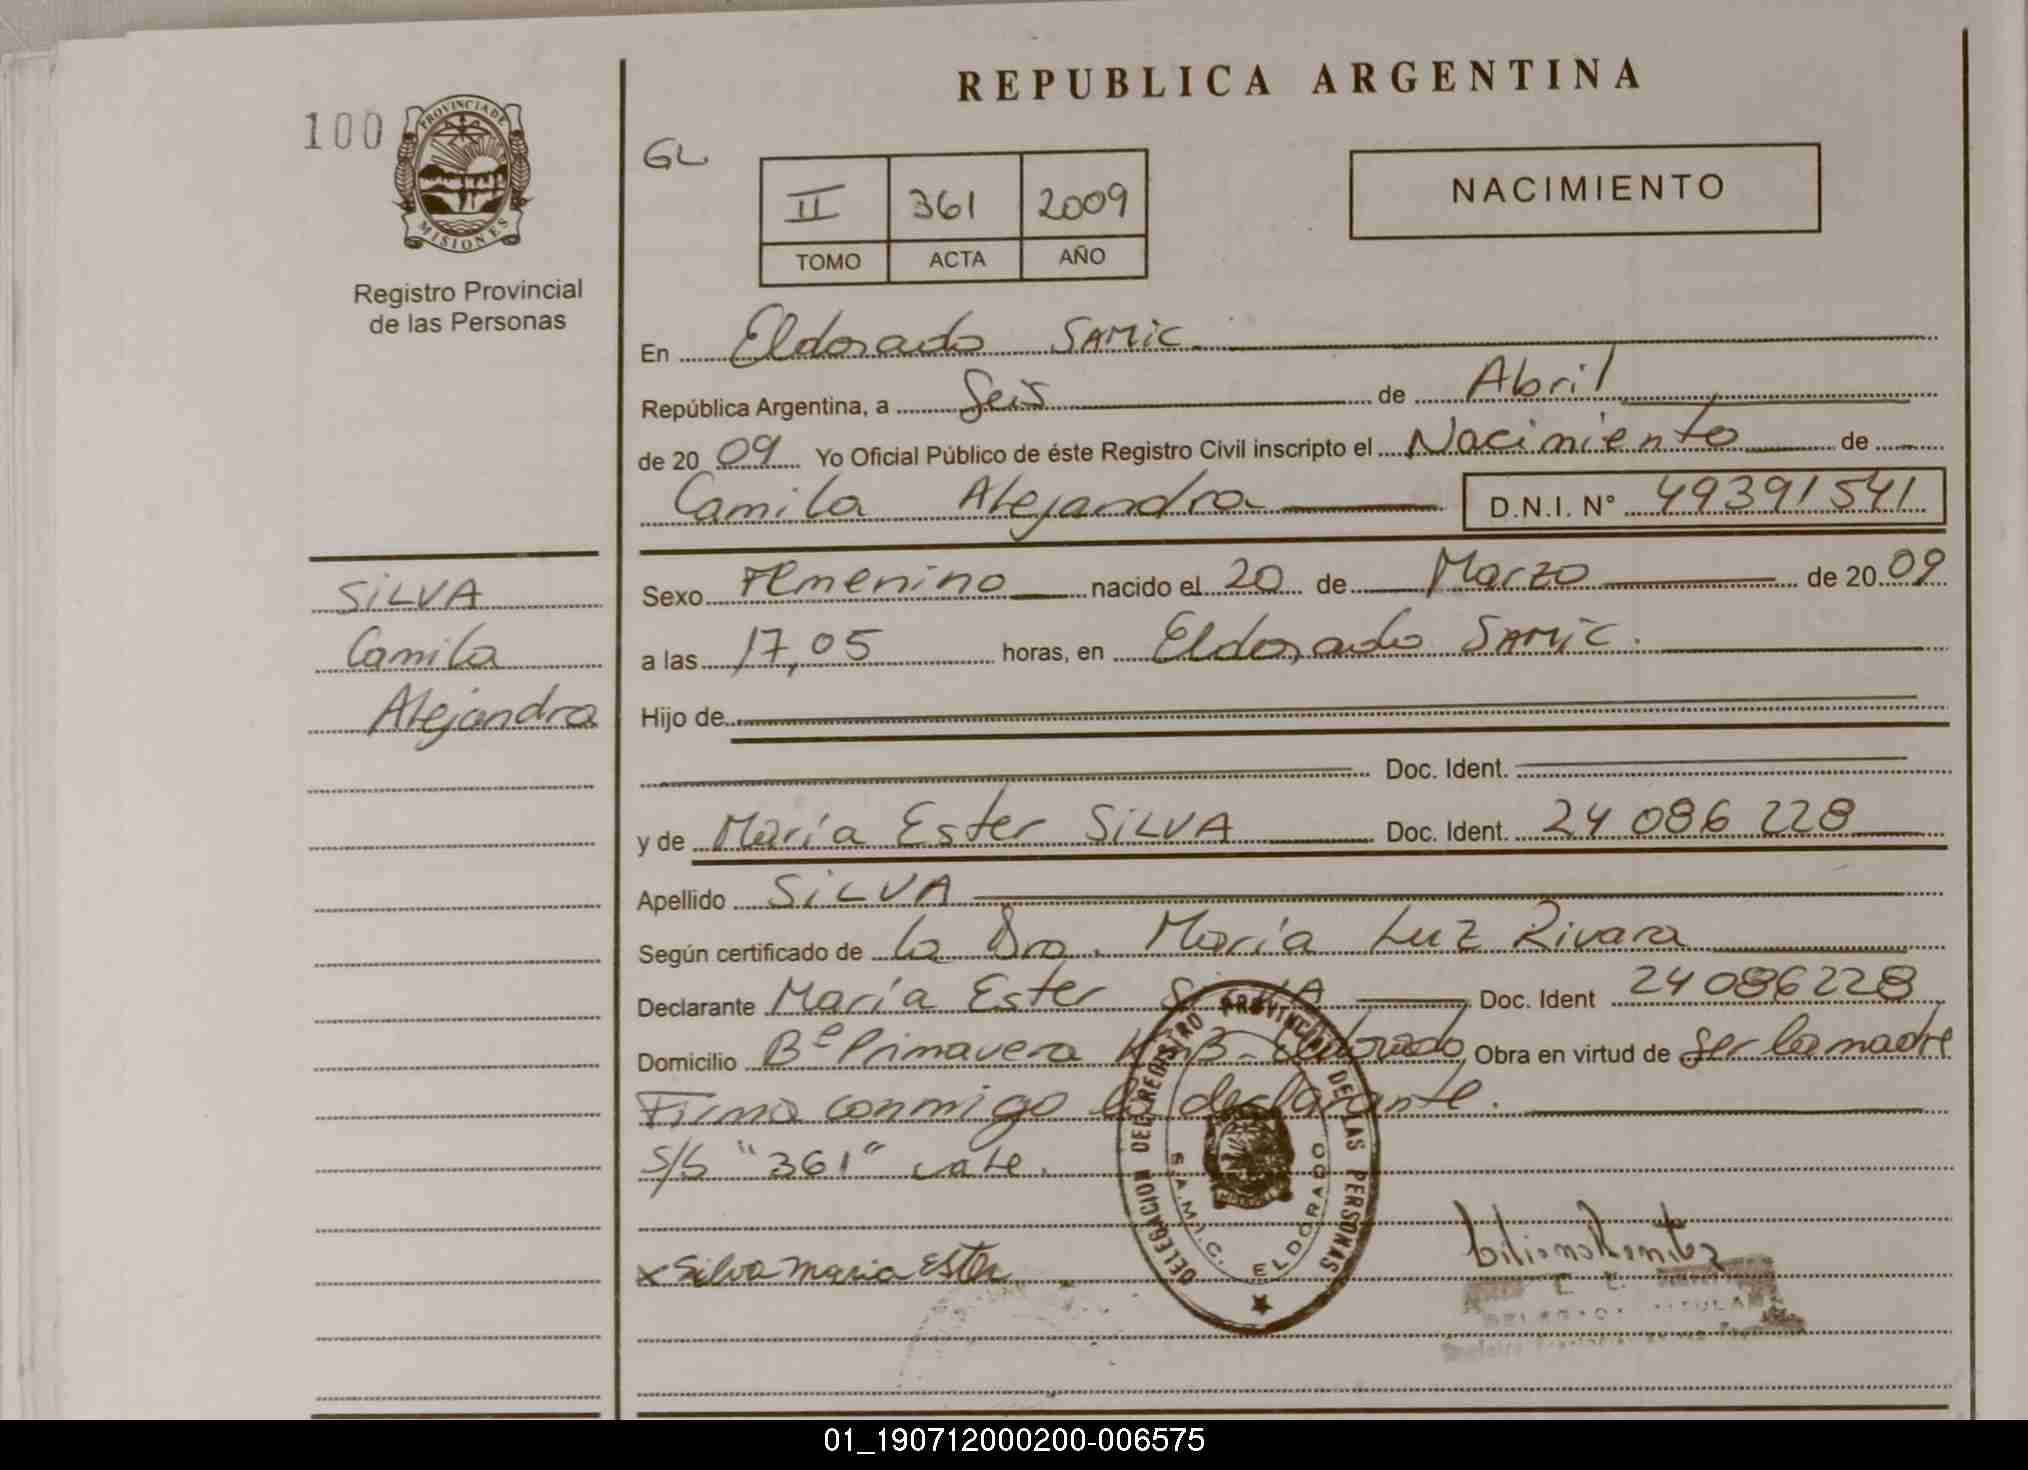 REPUBLICA ARGENTINA
100
PROVINCIA DE
MISIONES
Registro Provincial
de las Personas
GL
II 361 2009
TOMO ACTA AÑO
NACIMIENTO
En Eldorado SAMIC.
República Argentina, a Seis de Abril
de 20 09 Yo Oficial Público de éste Registro Civil inscripto el Nacimiento de
Camila Alejandra D.N.I. N° 49391541
SILVA
Camila
Alejandra
Sexo Femenino nacido el 20 de Marzo de 20 09
a las 17,05 horas, en Eldorado SAMIC.
Hijo de
Doc. Ident.
y de María Ester SILVA Doc. Ident. 24 086 228
Apellido SILVA
Según certificado de la Dra. María Luz Rivara
Declarante María Ester SILVA Doc. Ident 24086228
Domicilio Bº Primavera Km 3 - Eldorado, Obra en virtud de ser la madre
Firma conmigo la declarante.
S/b "361" vale.
x Silva Maria Ester
DELEGACION DEL REGISTRO PROVINCIAL DE LAS PERSONAS
S.A.M.I.C. ELDORADO
01_190712000200-006575